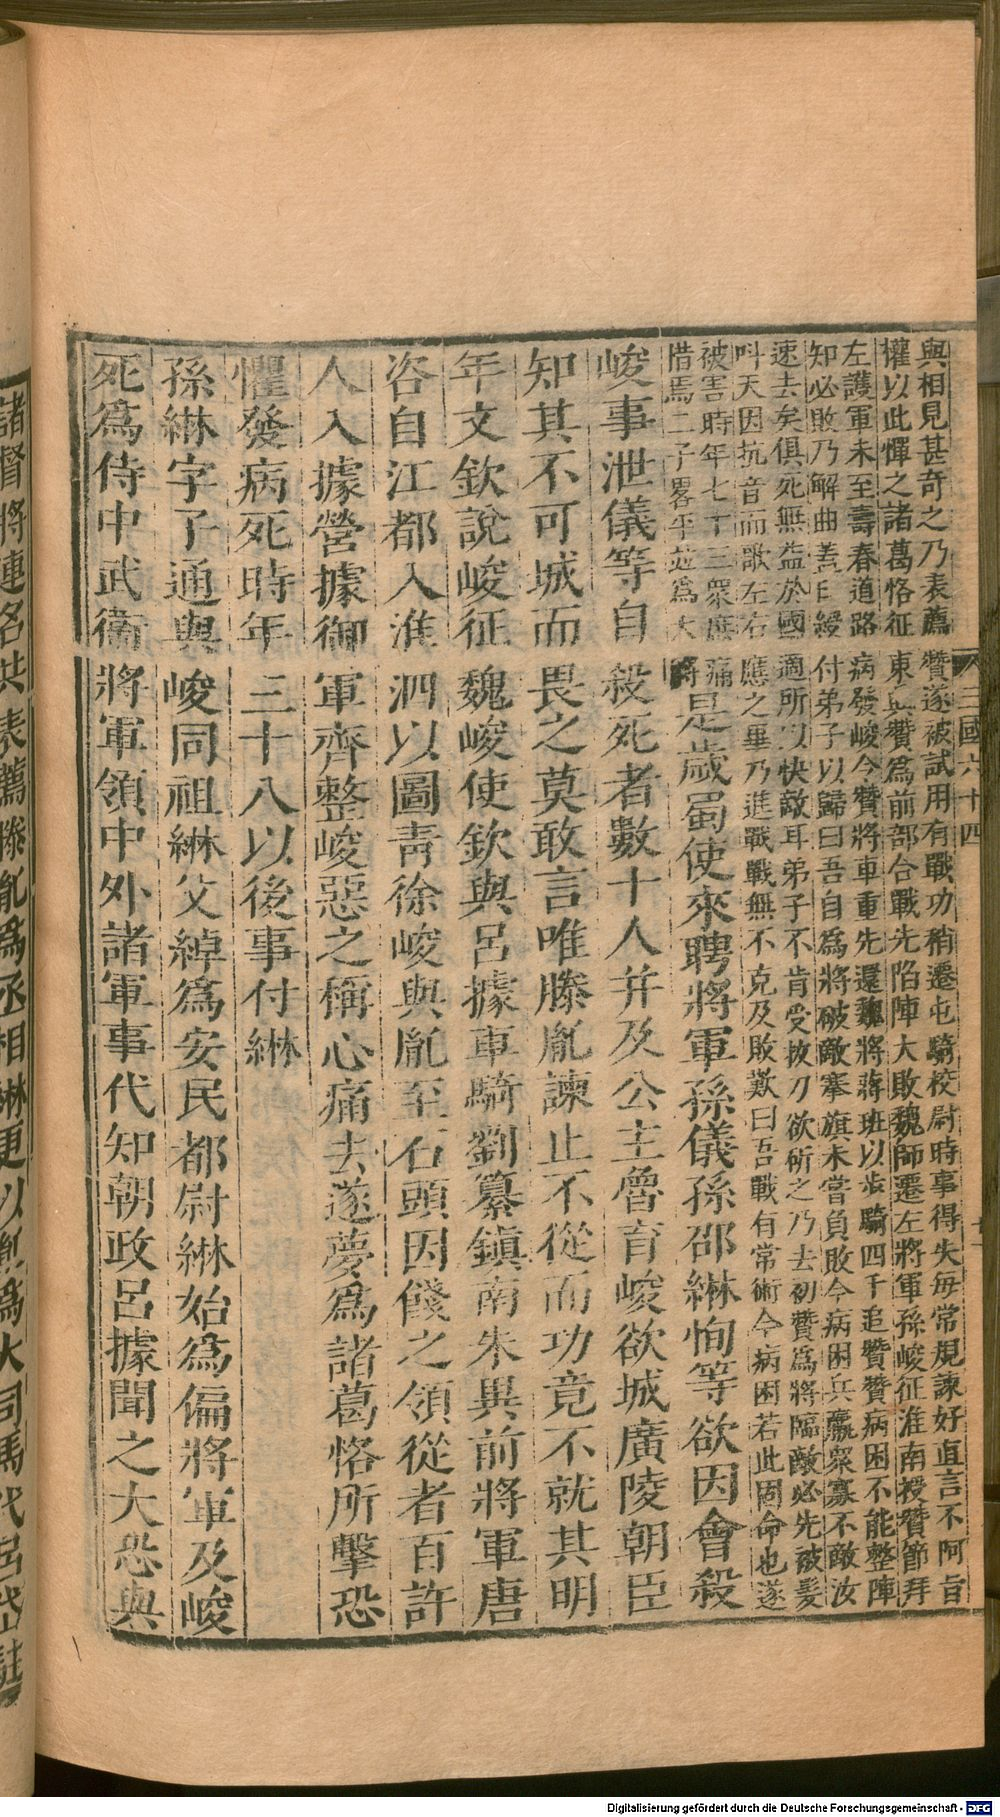 三國六十四
與相見甚奇之乃表薦贊遂被試用有戰功稍遷屯騎校尉時事得失每常規諫好直言不阿旨
權以此憚之諸葛恪征東興贊爲前部合戰先陷陣大敗魏師遷左將軍孫峻征淮南授贊節拜
左護軍未至壽春道路病發峻令贊將車重先還魏將蔣班以步騎四千追贊贊病困不能整陣
知必敗乃解曲蓋印綬付弟子以歸曰吾自爲將破敵搴旗未嘗負敗今病困兵羸衆寡不敵汝
速去矣俱死無益於國適所以快敵耳弟子不肯受拔刀欲斫之乃去初贊爲將臨敵必先被髮
叫天因抗音而歌左右應之畢乃進戰戰無不克及敗歎曰吾戰有常術今病困若此固命也遂
被害時年七十三衆庶痛
惜焉二子畧平並爲大將
是歲蜀使來聘將軍孫儀孫邵綝恂等欲因會殺
峻事泄儀等自殺死者數十人并及公主魯育峻欲城廣陵朝臣
知其不可城而畏之莫敢言唯滕胤諫止不從而功竟不就其明
年文欽說峻征魏峻使欽與呂據車騎劉纂鎮南朱異前將軍唐
咨自江都入淮泗以圖靑徐峻與胤至石頭因餞之領從者百許
人入據營據御軍齊整峻惡之稱心痛去遂夢爲諸葛恪所擊恐
懼發病死時年三十八以後事付綝
孫綝字子通與峻同祖綝父綽爲安民都尉綝始爲偏將軍及峻
死爲侍中武衞將軍領中外諸軍事代知朝政呂據聞之大恐與
諸督將連名共表薦滕胤爲丞相綝更以胤爲大司馬代呂岱駐
Digitalisierung gefördert durch die Deutsche Forschungsgemeinschaft - DFG